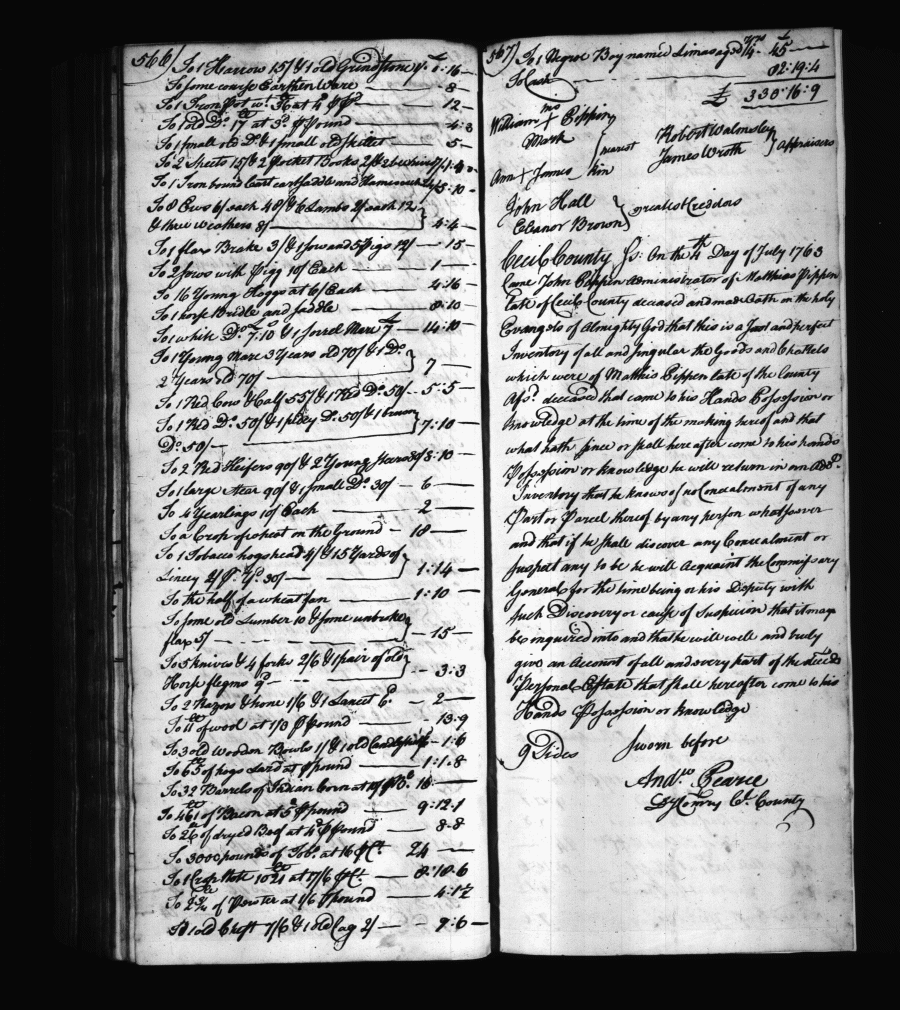 566)
To 1 Harrow 15/ & 1 old Grindstone 1/. £ 0:16—
To some course Earthen Ware — 8—
To 1 Iron Pot wt. 36 at 4d ⅌ lb — 12—
To 1 old Do. 17 lb at 3d ⅌ pound — 4:3
To 1 small old Do. & 1 small old skillet — 5—
To 2 Sheets 15/ & 2 Pocket Books 2/
To 1 Iron bound Cart cart saddle and Hames 5:10—
To 8 Ews 6/ each 48/ & 6 Lambs 2/ each 12/
& three weathers 8/ — 4:4—
To 1 flax Brake 3/ & 1 sow and 5 Pigs 12/ — 15—
To 2 sows with Pigg 10/ Each — 1—
To 16 Young Hoggs at 6/ Each — 4:16—
To 1 horse Bridle and saddle — 8:10—
To 1 white Do. 7:10 & 1 Sorrel Mare £7 — 14:10—
To 1 Young Mare 3 Years old 70/ & 1 Do.
2 Years old 70/ — 7—
To 1 Red Cow & Calf 55/ & 1 Red Do. 50/ — 5:5—
To 1 Red Do. 50/ & 1 pidey Do. 50/ & 1 brown
Do. 50/ — 7:10—
To 2 Red Heifers 90/ & 2 Young steers 80/ 8:10—
To 1 large stear 90/ & 1 small Do. 30/ — 6—
To 4 Yearlings 10/ Each — 2—
To a Crop of wheat on the Ground 18—
To 1 Tobacco hogshead 4/ & 15 Yards of
Lincey 2/ ⅌ Yd. 30/ — 1:14—
To the half of a wheat fan — 1:10—
To some old Lumber 10 & some unbroke
flax 5/ — 15—
To 5 knives & 4 forks 2/6 & 1 pair of old
Horse flegms 9d — 3:3
To 2 Razors & hone 1/6 & 1 Lancet 6. — 2—
To 11 lb of wool at 1/3 ⅌ pound — 13:9
To 3 old Wooden Bowls 1/ & 1 old Candlestick — 1:6
To 65 lb of hogs Lard at 4 ⅌ pound — 1:1:8
To 32 Barrels of Indian Corn at 10/ ⅌ B. 16—
To 461 lb of Bacon at 5d ⅌ pound — 9:12:1
To 26 lb of dryed Beef at 4d ⅌ pound — 8:8
To 3000 pounds of Tobo. at 16 ⅌ Ct. 24—
To 1 Crop Note 1021 lb at 17/6 ⅌ Ct. — 8:18:6
To 2¾ lb of Pewter at 1/6 ⅌ pound — 4:1½
To 1 old Chest 7/6 & 1 old Cag 2/ — 9:6—
567) To 1 Negroe Boy named Limas aged 14 yrs. £45—
To Cash — 82:19:4
£ 330:16:9
William + Pippin
Mark
Ann + James
nearest
kin
Robert Walmsley
James Wroth
Appraisers
John Hall
Eleanor Brown
greatest Creddors
Cecil County Ss: On the 4th Day of July 1763
Came John Pippen Administrator of Matthias Pippen
late of Cecil County deceased and made Oath on the holy
Evangels of Almighty God that this is a Just and perfect
Inventory of all and singular the Goods and Chattels
which were of Matthis Pippen late of the County
Afsd. deceased that came to his Hands Possession or
knowledge at the time of the making hereof and that
what hath since or shall here after come to his hands
Possession or knowledge he will return in an Add.
Inventory that he knows of no Concealment of any
Part or Parcel thereof by any person whatsoever
and that if he shall discover any Concealment or
suspect any to be he will Acquaint the Commissary
General for the time being or his Deputy with
such Discovery or cause of Suspicion that it may
be enquired into and that he will well and truly
give an Account of all and every part of the deceds
Personal Estate that shall hereafter come to his
Hands Possession or knowledge
9 Sides sworn before
Andw Pearce
Dy Comry Cl. County